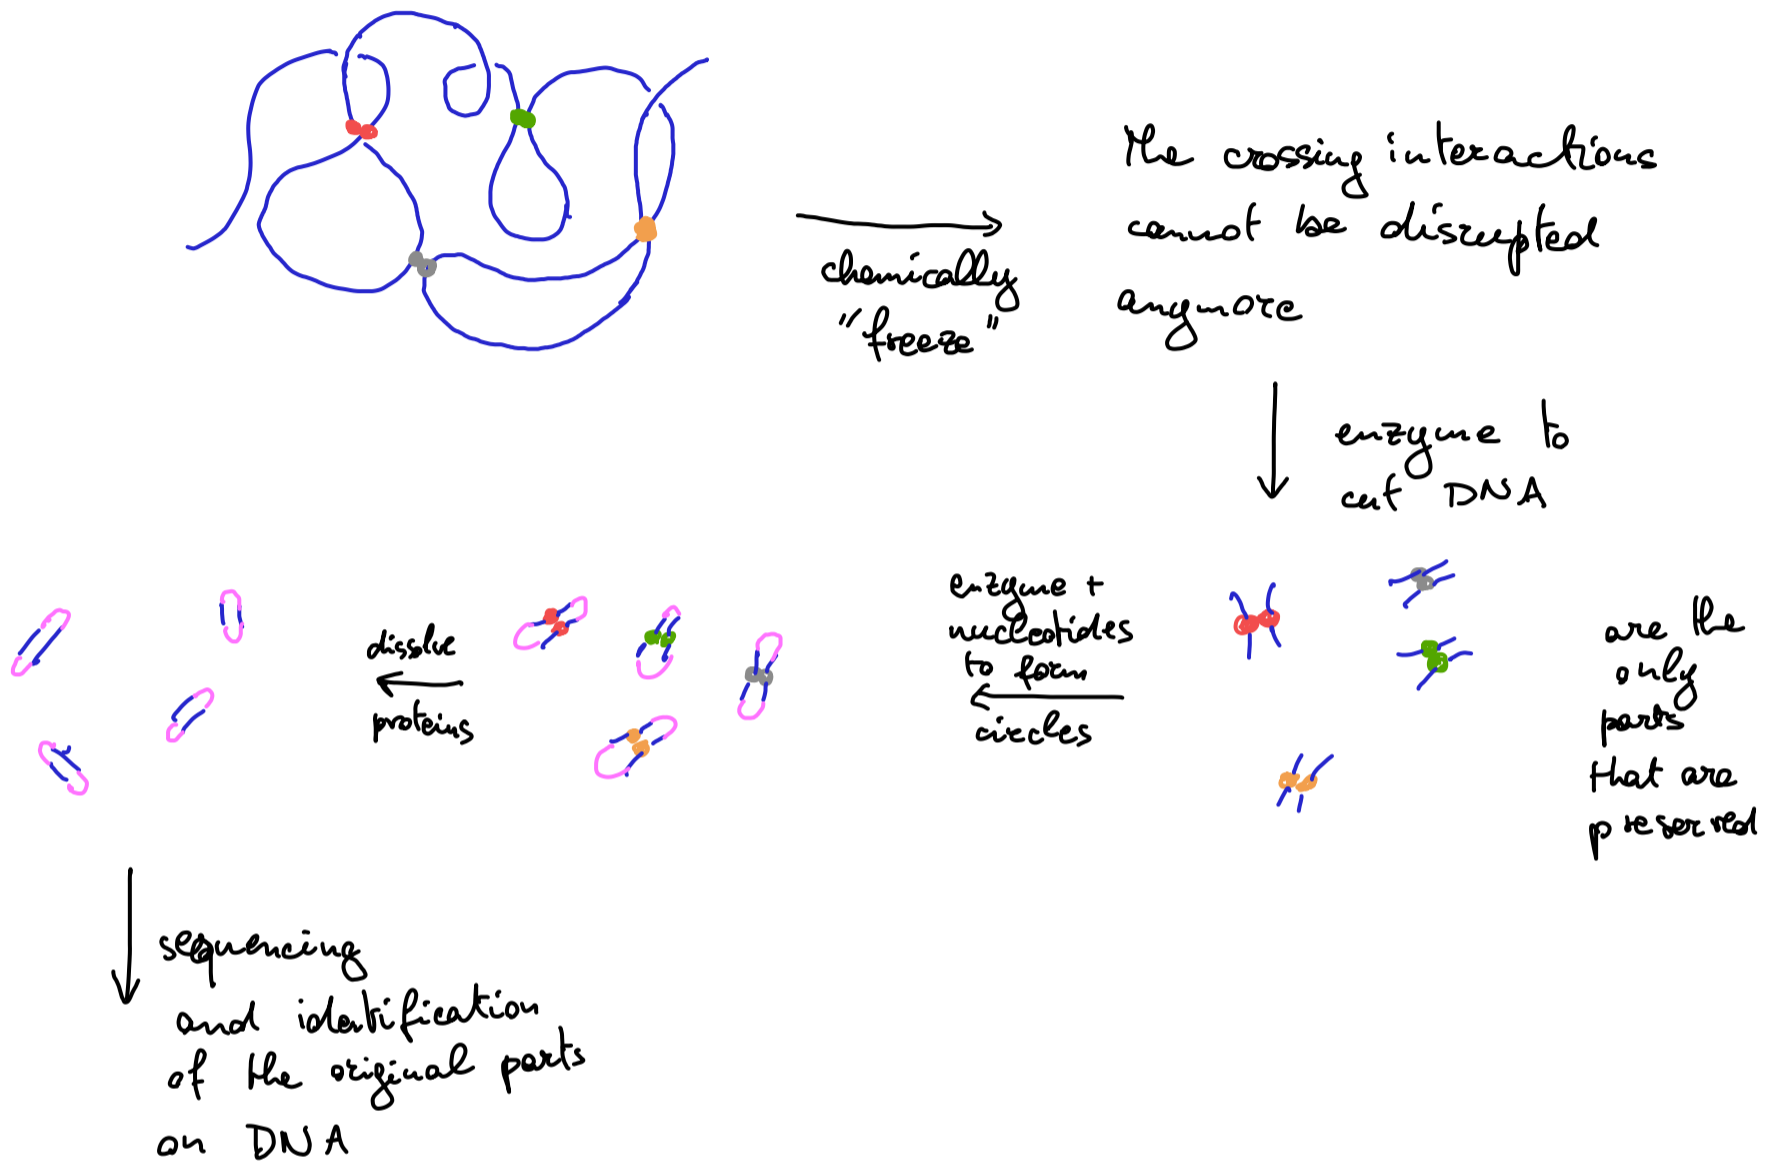 The crossing interactions
cannot be disrupted
anymore
chemically
"freeze"
enzyme to
cut DNA
are the
only
parts
that are
preserved
enzyme +
nucleotides
to form
circles
dissolve
proteins
sequencing
and identification
of the original parts
on DNA